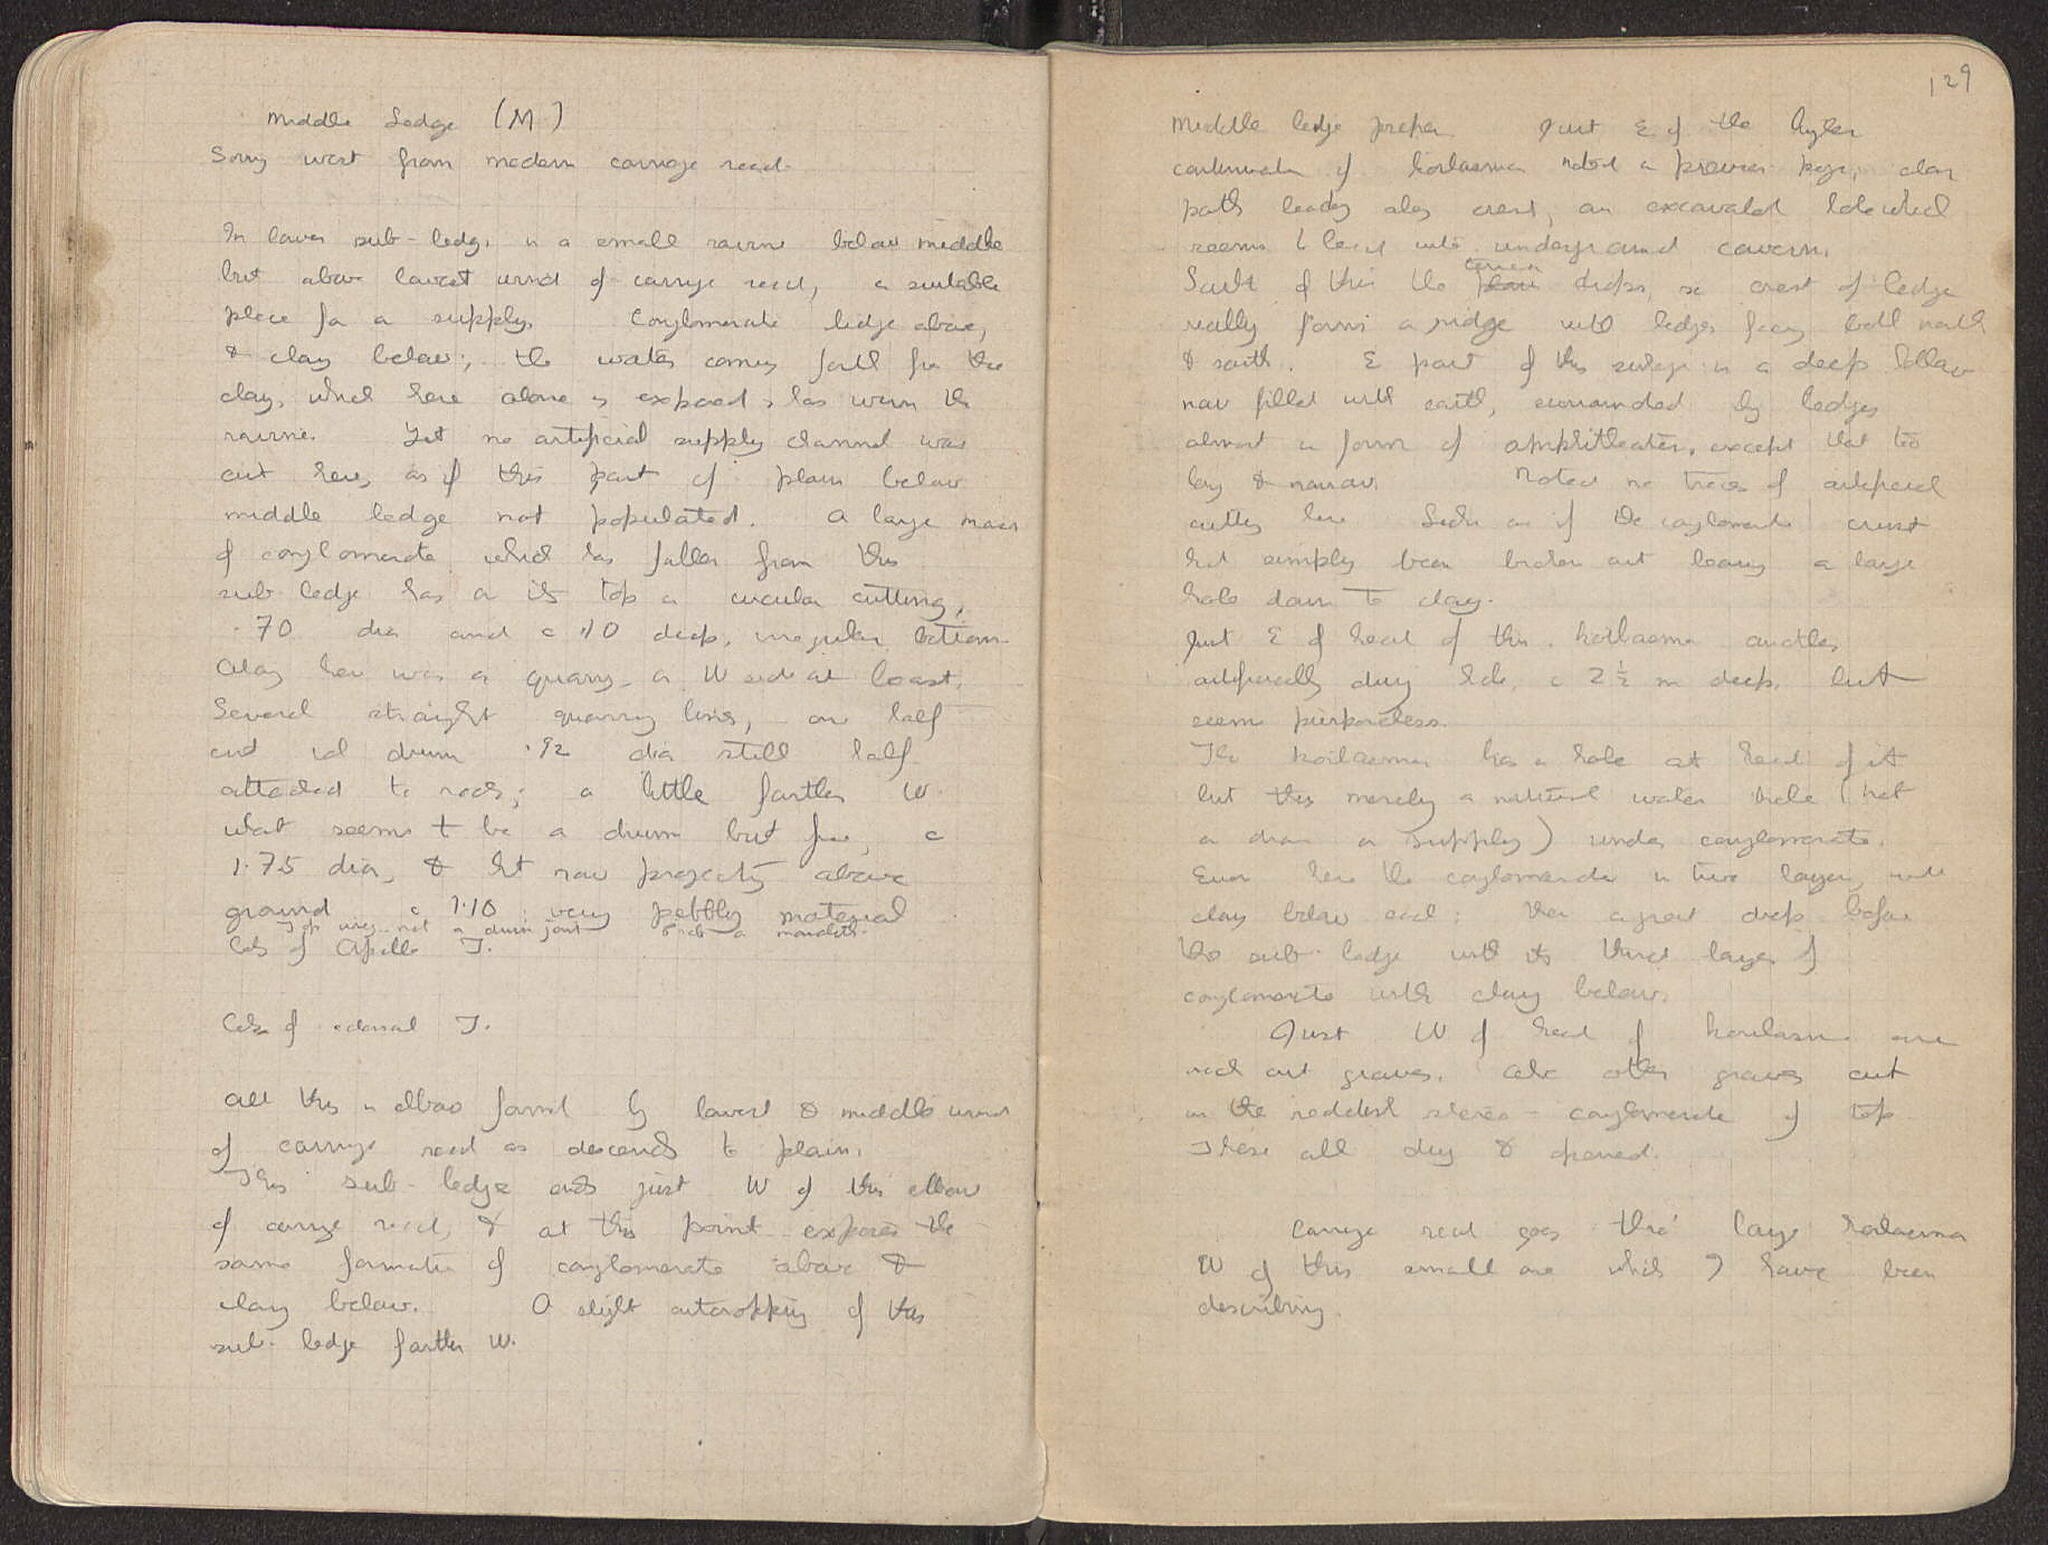 Middle Ledge (M)
Going west from modern carriage road.
In lower sub-ledge, is a small ravine below middle
but above lowest wind of carriage road, a suitable
place for a supply. Conglomerate ledge above,
& clay below; the water coming forth from the
clay, which here alone is exposed, has worn the
ravine. Yet no artificial supply channel was
cut here, as if this part of plain below
middle ledge not populated. A large mass
of conglomerate which has fallen from this
sub ledge has on its top a circular cutting,
.70 dia and c .10 deep, irregular bottom.
Clay here was a quarry, on W side at least.
Several straight quarry lines, one half
cut col drum .92 dia still half
attached to rock; a little farther W.
what seems to be a drum but free, c
1.75 dia, & ht now projecting above
ground c 1.10, very pebbly material
Top irreg. not a drum joint
Cols of Apollo T.
Cols of T.
All this in elbow formed by lowest & middle winds
of carriage road as descends to plain.
This sub-ledge ends just W of this elbow
of carriage road, & at this point exposes the
same formation of conglomerate above &
clay below. A slight outcropping of this
sub-ledge farther W.
129
Middle ledge proper. Just E of the
continuation of koilasma noted on previous page, along
path leading along crest, an excavated hole which
seems to lead into underground cavern.
South of this the plain terrain drops, so crest of ledge
really forms a ridge with ledges facing both north
& south. E part of this is a deep hollow
now filled with earth, surrounded by ledges
almost in form of amphitheater, except that too
long & narrow. Noted no traces of artificial
cutting here. Looks as if the conglomerate crust
had simply been broken out leaving a large
hole down to clay.
Just E of head of this koilasma another
artificially dug hole, c 2½ m deep, but
seems purposeless.
The koilasma has a hole at head of it
but this merely a natural water hole (not
a drain or supply) under conglomerate.
Even here the conglomerate in two layers, with
clay below each; then a great drop before
the sub-ledge with its third layer of
conglomerate with clay below.
Just W of head of koilasma are
rock cut graves. Also other graves cut
in the reddish stereo-conglomerate of top
These all dug & opened.
Carriage road goes thro' large koilasma
W of this small one which I have been
describing.